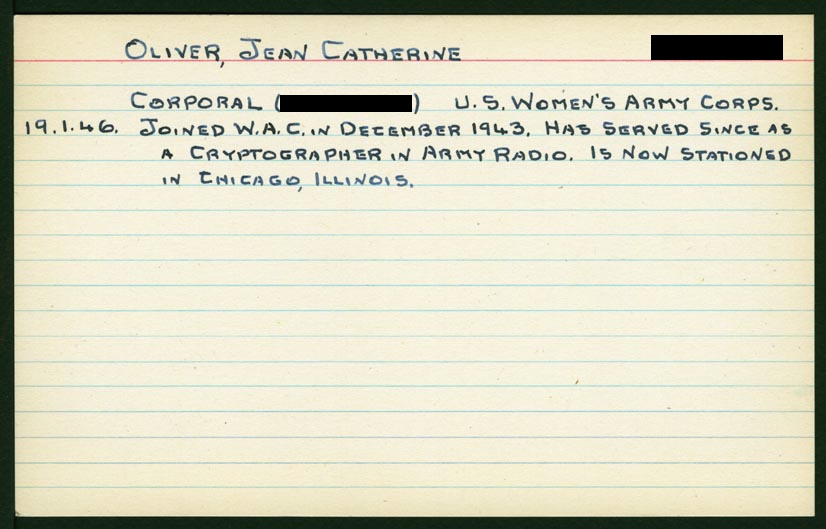 OLIVER, JEAN CATHERINE
CORPORAL ( ) U.S. WOMEN'S ARMY CORPS.
19.1.46. JOINED W.A.C. IN DECEMBER 1943. HAS SERVED SINCE AS
A CRYPTOGRAPHER IN ARMY RADIO. IS NOW STATIONED
IN CHICAGO, ILLINOIS.